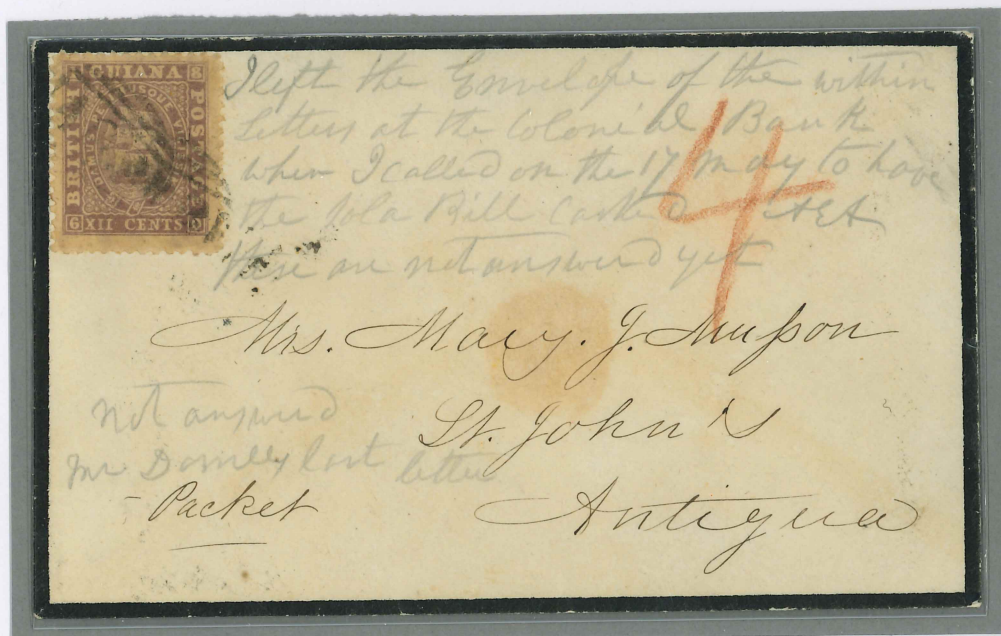 BRITISH GUIANA POSTAGE
DAMUS PETIMUSQUE VICISSIM
XII CENTS
1 8 6 0
I left the Envelope of the within
Letters at the Colonial Bank
when I called on the 17 May to have
the Bill cashed
these are not answerd yet
4
Mrs. Mary. J. Musson
St. John's
Antigua
not answerd
Mr last letter
Packet